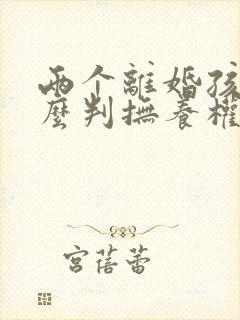 兩个離婚孩
麼判撫養權
宮蓓蕾